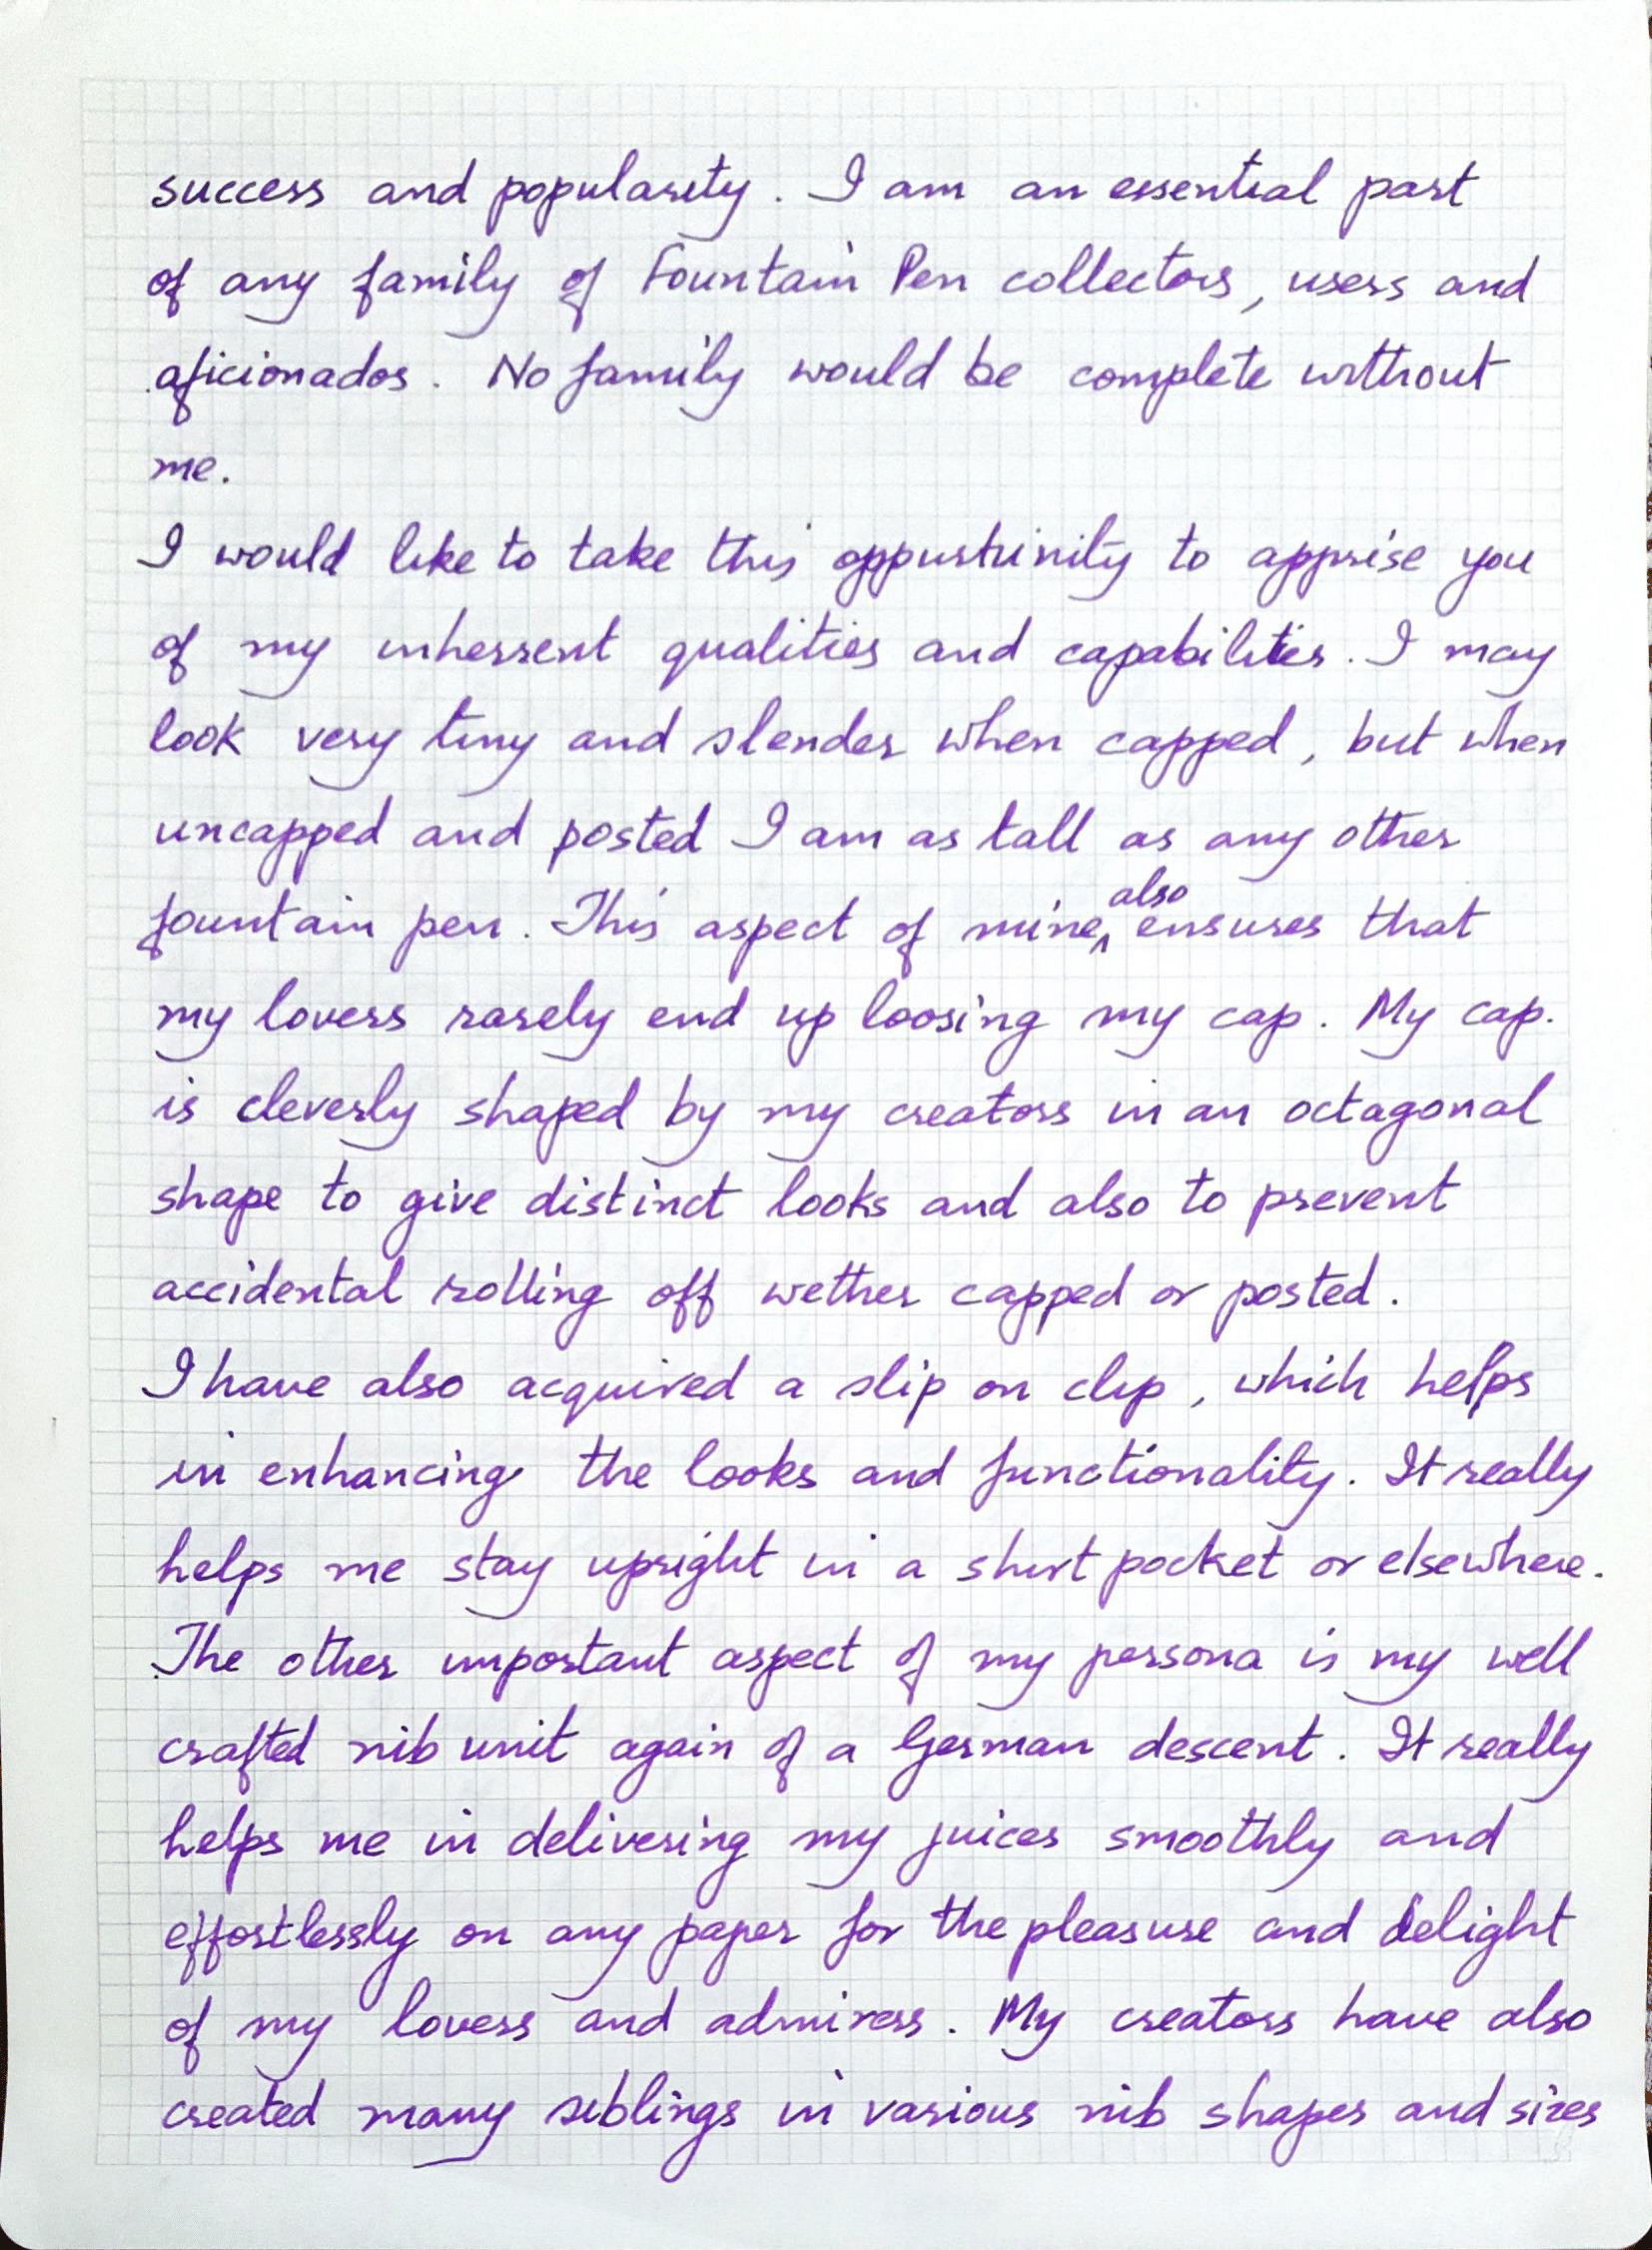 success and popularity. I am an essential part
of any family of Fountain Pen collectors, users and
aficionados. No family would be complete without
me.
I would like to take this oppurtunity to apprise you
of my inherrent qualities and capabilities. I may
look very tiny and slender when capped, but when
uncapped and posted I am as tall as any other
fountain pen. This aspect of mine, also ensures that
my lovers rarely end up loosing my cap. My cap.
is cleverly shaped by my creators in an octagonal
shape to give distinct looks and also to prevent
accidental rolling off wether capped or posted.
I have also acquired a slip on clip, which helps
in enhancing the looks and functionality. It really
helps me stay upright in a shirt pocket or elsewhere.
The other important aspect of my persona is my well
crafted nib unit again of a German descent. It really
helps me in delivering my juices smoothly and
effortlessly on any paper for the pleasure and delight
of my lovers and admirers. My creators have also
created many siblings in various nib shapes and sizes